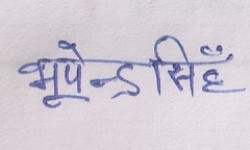 भूपेन्द्र सिहँ